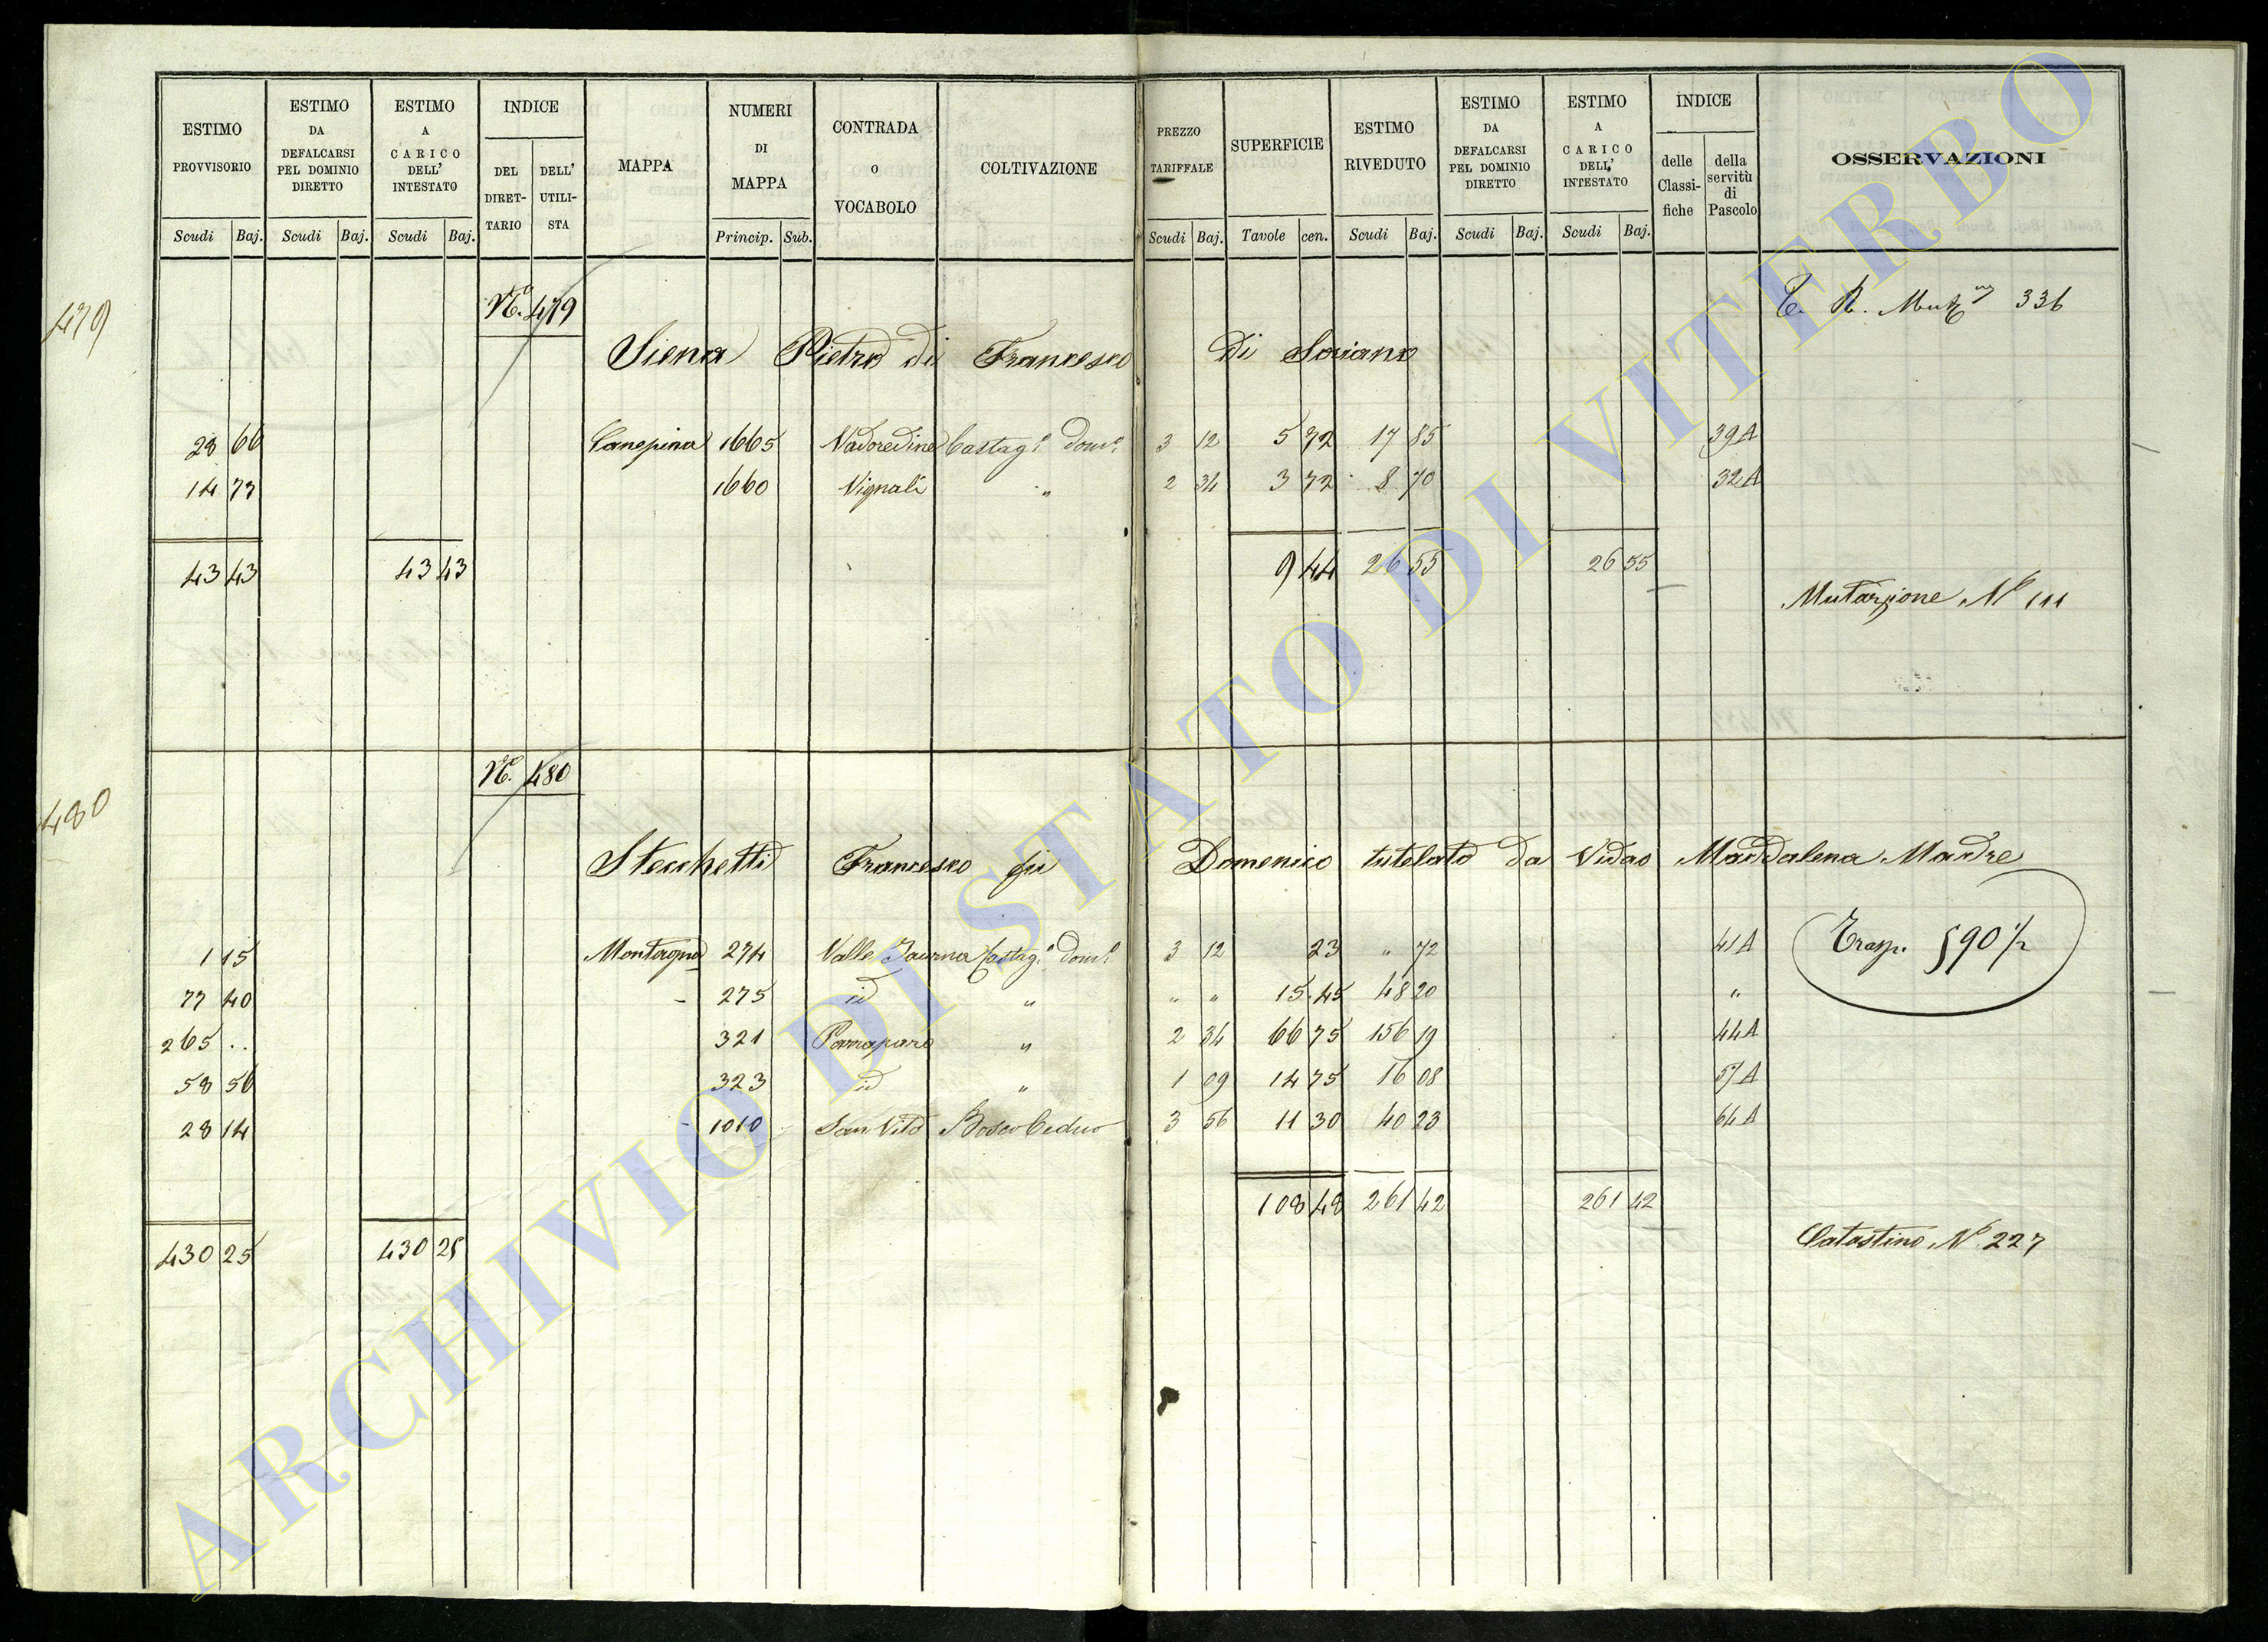 ESTIMO PROVVISORIO
ESTIMO DA DEFALCARSI PEL DOMINIO DIRETTO
ESTIMO A CARICO DELL' INTESTATO
INDICE
DEL DIRET-TARIO
DELL' UTILI-STA
MAPPA
NUMERI DI MAPPA
CONTRADA o VOCABOLO
COLTIVAZIONE
PREZZO TARIFFALE
SUPERFICIE
ESTIMO RIVEDUTO
ESTIMO DA DEFALCARSI PEL DOMINIO DIRETTO
ESTIMO A CARICO DELL' INTESTATO
INDICE
delle Classi-fiche
della servitù di Pascolo
OSSERVAZIONI
Scudi Baj. Scudi Baj. Scudi Baj. Princip. Sub. Scudi Baj. Tavole cen. Scudi Baj. Scudi Baj. Scudi Baj.
479
N.º 479
336
Siena Pietro di Francesco di Soriano
28 66 Canepina 1665 Castag.º dom.º 3 12 5 72 17 85 39A
14 77 1660 Vignali " 2 34 3 72 8 70 32A
43 43 43 43 9 44 26 55 26 55
Mutazione Nº 111
480
N.º 480
Stecchetti Francesco fu Domenico tutelato da Vidao Maddalena Madre
1 15 Montagna 274 Valle Castag.º dom.º 3 12 23 " 72 41A
77 40 - 275 id " " " 15 45 48 20 "
265 .. 321 " 2 34 66 75 156 19 44A
58 56 323 id " 1 09 14 75 16 08 57A
28 14 - 1010 San Vito Bosco Ceduo 3 56 11 30 40 23 64A
108 48 261 42 261 42
430 25 430 25
Catastino Nº 227
ARCHIVIO DI STATO DI VITERBO